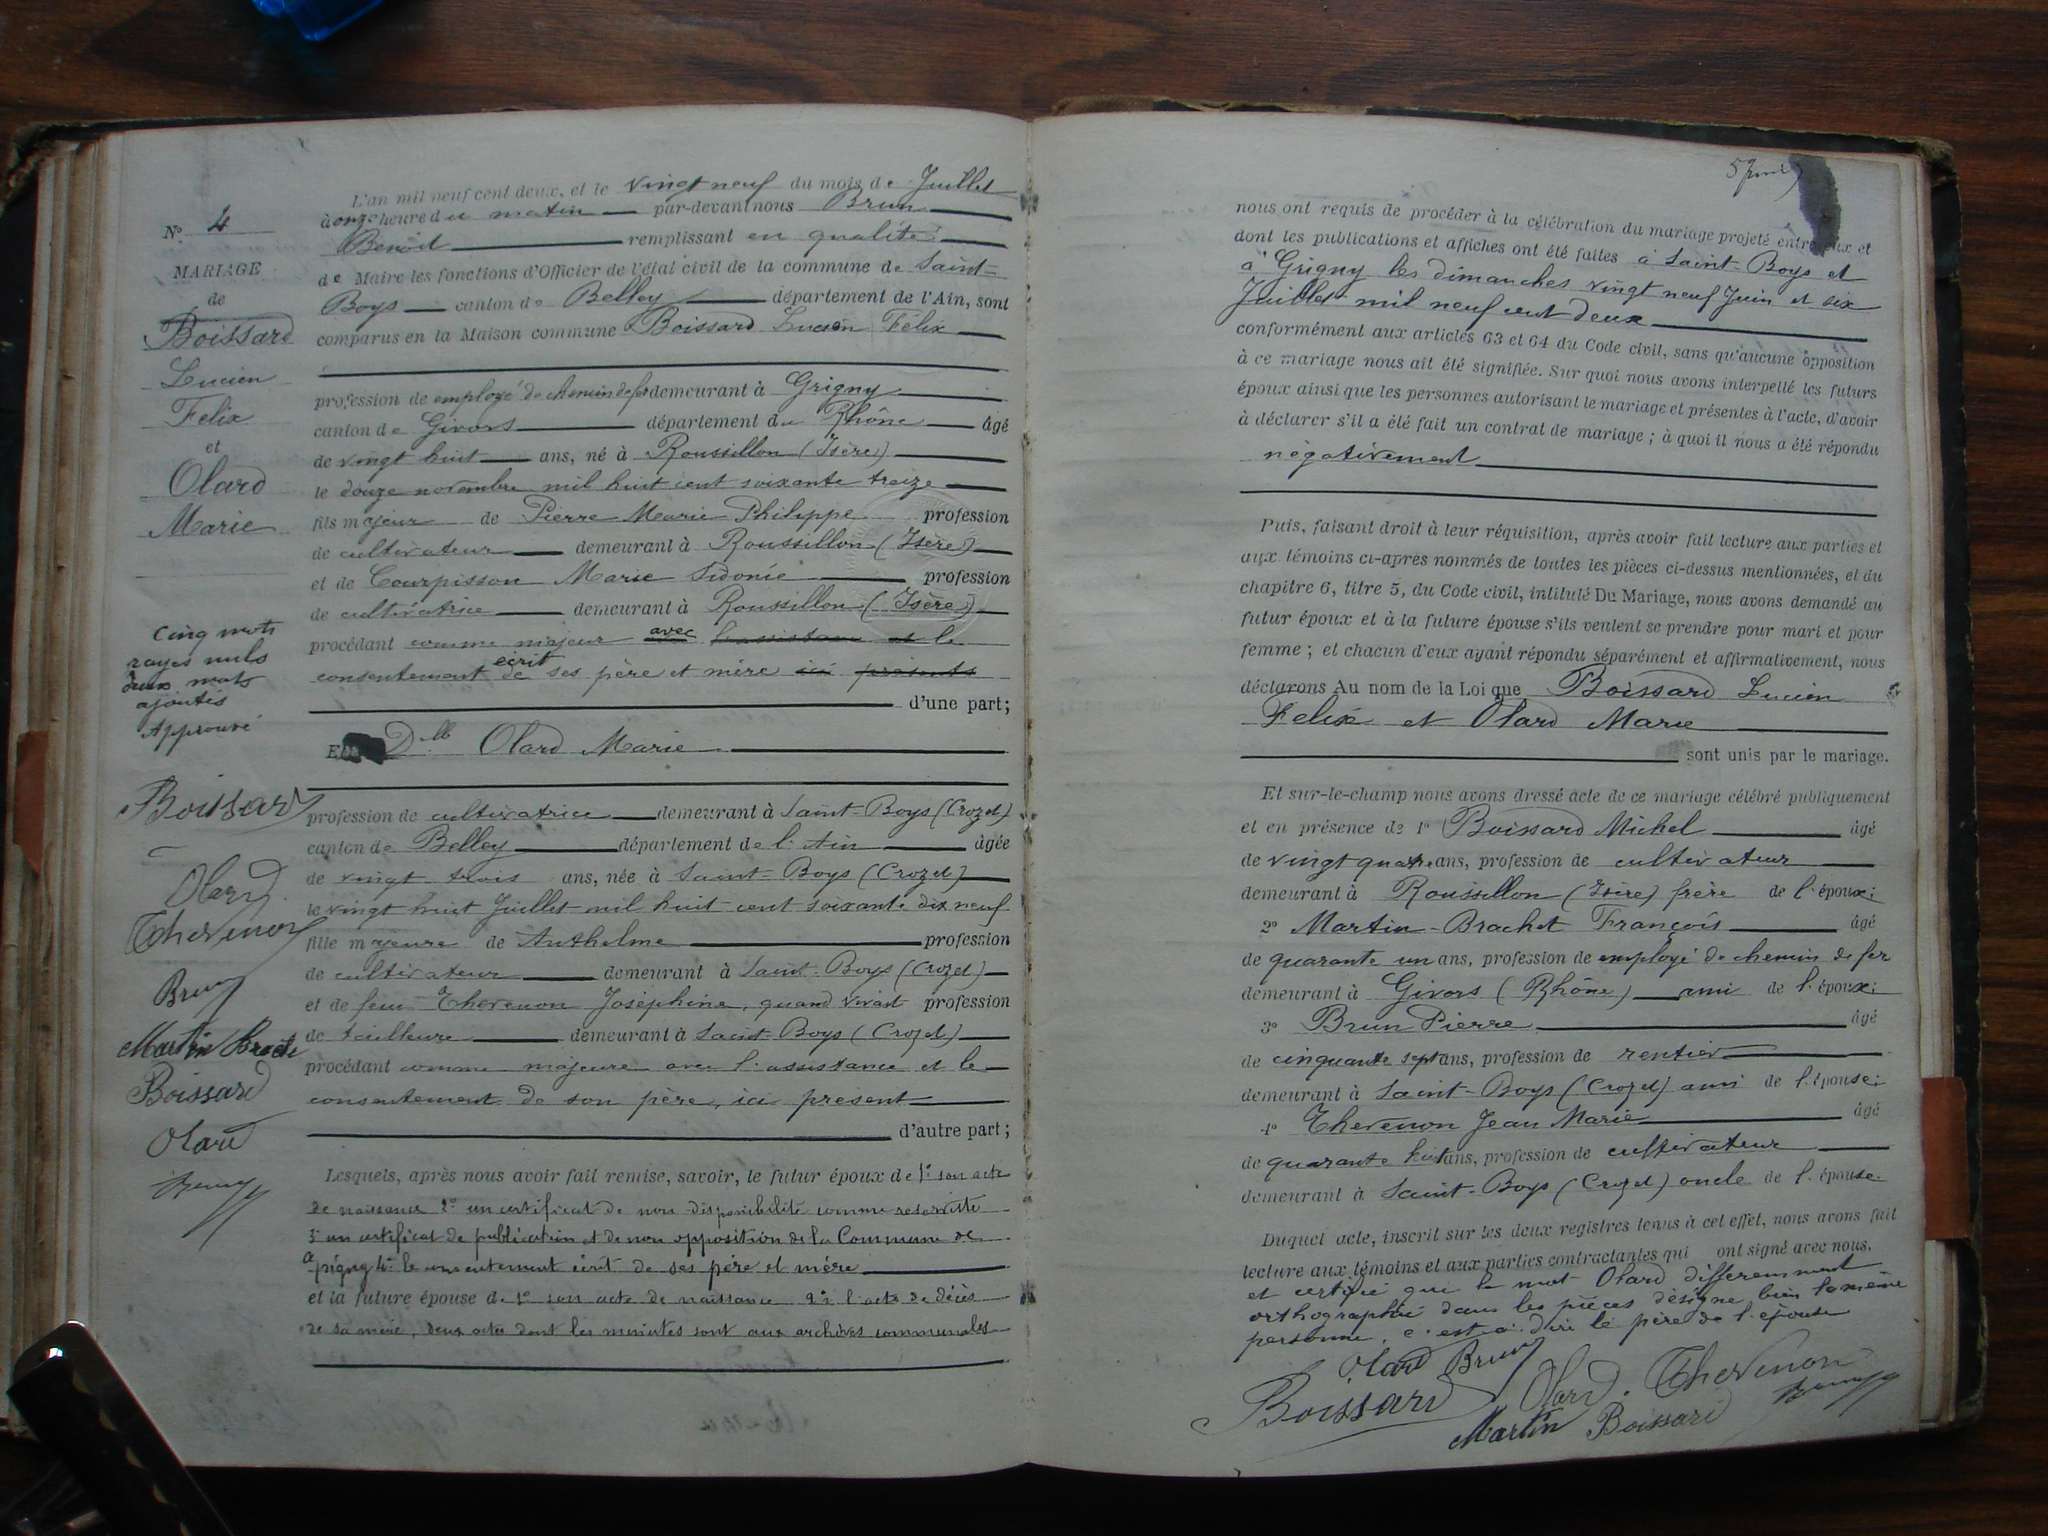 L'an mil neuf cent deux, et le vingt neuf du mois de Juillet
à onze heure du matin par-devant nous Brun
Benoit remplissant en qualité
de Maire les fonctions d'Officier de l'état civil de la commune de Saint-
Boys canton de Belley département de l'Ain, sont
comparus en la Maison commune Boissard Lucien Félix
profession de employé de chemin de fer demeurant à Grigny
canton de Givors département du Rhône âgé
de vingt huit ans, né à Roussillon (Isère)
le douze novembre mil huit cent soixante treize
fils majeur de Pierre Marie Philippe profession
de cultivateur demeurant à Roussillon (Isère)
et de Courpisson Marie Sidonie profession
de cultivatrice demeurant à Roussillon (Isère)
procédant comme majeur avec l'assistance et le
consentement écrit de ses père et mère ici présents
d'une part;
Et D.lle Olard Marie
profession de cultivatrice demeurant à Saint-Boys (Crozet)
canton de Belley département de l'Ain âgée
de vingt trois ans, née à Saint-Boys (Crozet)
le vingt huit Juillet mil huit cent soixante dix neuf
fille majeure de Anthelme profession
de cultivateur demeurant à Saint-Boys (Crozet)
et de feue Thevenon Joséphine, quand vivait profession
de tailleuse demeurant à Saint-Boys (Crozet)
procédant comme majeure avec l'assistance et le
consentement de son père, ici présent
d'autre part;
Lesquels, après nous avoir fait remise, savoir, le futur époux de 1° son acte
de naissance 2° un certificat de non disponibilité comme reserviste
3° un certificat de publication et de non opposition de la Commune de
Grigny 4° le consentement écrit de ses père et mère
et la future épouse de 1° son acte de naissance 2° l'acte de décès
de sa mère, deux actes dont les minutes sont aux archives communales
N° 4
MARIAGE
de
Boissard
Lucien
Felix
et
Olard
Marie
Cinq mots
rayés nuls
deux mots
ajoutés
Approuvé
Boissard
Olard
Thevenon
Brun
Martin Brachet
Boissard
Olard
nous ont requis de procéder à la célébration du mariage projeté entre eux et
dont les publications et affiches ont été faites à Saint-Boys et
à Grigny les dimanches vingt neuf Juin et six
Juillet mil neuf cent deux
conformément aux articles 63 et 64 du Code civil, sans qu'aucune opposition
à ce mariage nous ait été signifiée. Sur quoi nous avons interpellé les futurs
époux ainsi que les personnes autorisant le mariage et présentes à l'acte, d'avoir
à déclarer s'il a été fait un contrat de mariage; à quoi il nous a été répondu
négativement
Puis, faisant droit à leur réquisition, après avoir fait lecture aux parties et
aux témoins ci-après nommés de toutes les pièces ci-dessus mentionnées, et du
chapitre 6, titre 5, du Code civil, intitulé Du Mariage, nous avons demandé au
futur époux et à la future épouse s'ils veulent se prendre pour mari et pour
femme; et chacun d'eux ayant répondu séparément et affirmativement, nous
déclarons Au nom de la Loi que Boissard Lucien
Felix et Olard Marie
sont unis par le mariage.
Et sur-le-champ nous avons dressé acte de ce mariage célébré publiquement
et en présence de 1° Boissard Michel âgé
de vingt quatre ans, profession de cultivateur
demeurant à Roussillon (Isère) frère de l'époux;
2° Martin-Brachet François âgé
de quarante un ans, profession de employé de chemin de fer
demeurant à Givors (Rhône) ami de l'époux;
3° Brun Pierre âgé
de cinquante sept ans, profession de rentier
demeurant à Saint-Boys (Crozet) ami de l'épouse;
4° Thevenon Jean Marie âgé
de quarante huit ans, profession de cultivateur
demeurant à Saint-Boys (Crozet) oncle de l'épouse.
Duquel acte, inscrit sur les deux registres tenus à cet effet, nous avons fait
lecture aux témoins et aux parties contractantes qui ont signé avec nous.
et certifié que le mot Olard différemment
orthographié dans les pièces désigne bien la même
personne, c'est à dire le père de l'épouse
Olard Brun
Boissard Olard Thevenon
Martin Boissard